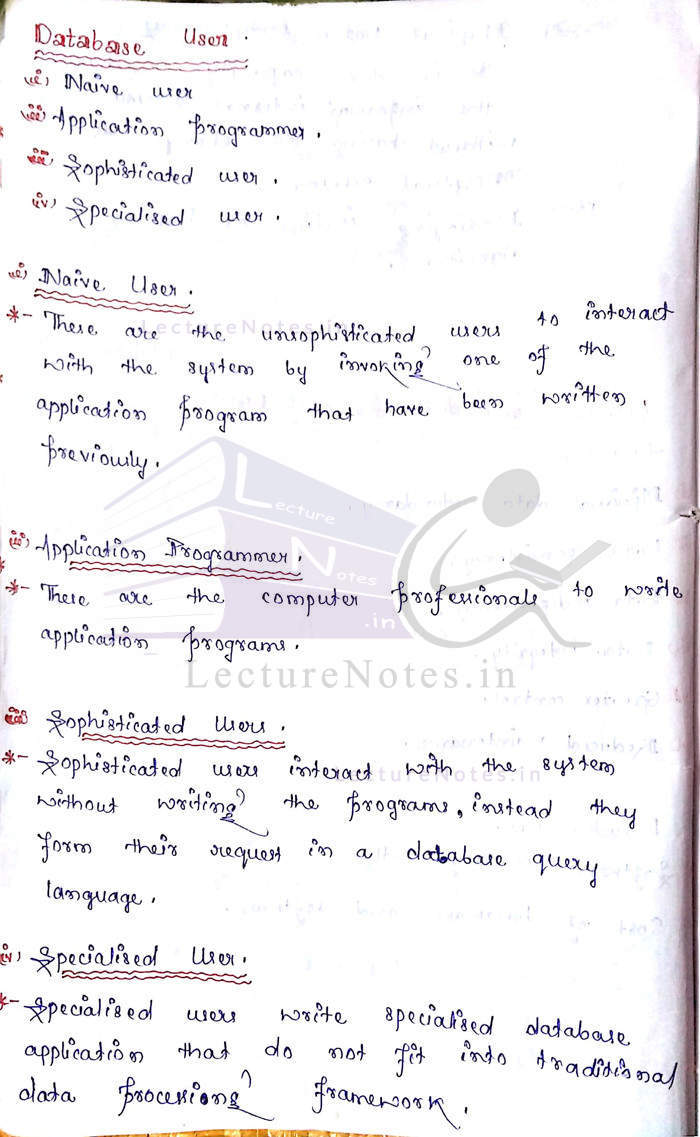 Database User.
i) Naive user
ii) Application programmer.
iii) Sophisticated user.
iv) Specialised user.
i) Naive User.
*- These are the unsophisticated users to interact
with the system by invoking one of the
application program that have been written.
previously.
ii) Application Programmer.
*- These are the computer professionals to write
application programs.
iii) Sophisticated Users.
*- Sophisticated users interact with the system
without writing the programs, instead they
form their request in a database query
language.
iv) Specialised User.
*- Specialised users write specialised database
application that do not fit into traditional
data processing framework.
LectureNotes.in
Lecture
Notes
.in
LectureNotes.in
LectureNotes.in